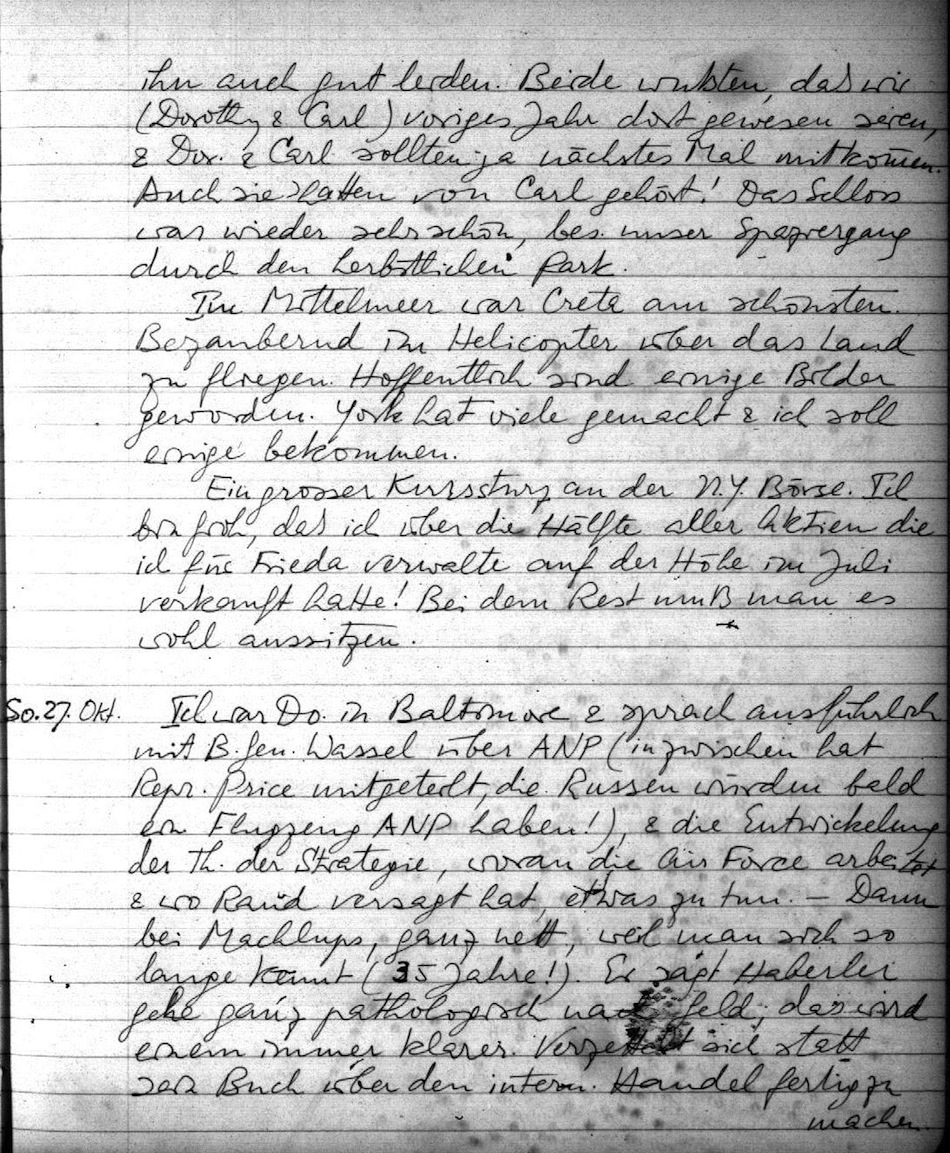 ihn auch gut leiden. Beide wußten, daß wir
(Dorothy & Carl) voriges Jahr dort gewesen seien,
& Dor. & Carl sollten ja nächstes Mal mitkommen.
Auch sie hatten von Carl gehört! Das Schloss
war wieder sehr schön, bes. unser Spaziergang
durch den herbstlichen Park.
Im Mittelmeer war Creta am schönsten.
Bezaubernd im Helicopter über das Land
zu fliegen. Hoffentlich sind einige Bilder
geworden. York hat viele gemacht & ich soll
einige bekommen.
Ein grosser Kurssturz an der N.Y. Börse. Ich
bin froh, daß ich über die Hälfte aller Aktien die
ich für Frieda verwalte auf der Höhe im Juli
verkauft hatte! Bei dem Rest muß man es
wohl aussitzen.
So. 27. Okt. Ich war Do. in Baltimore & sprach ausführlich
mit B. Gen. Wassel über ANP (inzwischen hat
Repr. Price mitgeteilt, die Russen würden bald
ein Flugzeug ANP haben!), & die Entwickelung
der Th. der Strategie, woran die Air Force arbeitet
& wo Rand versagt hat, etwas zu tun. — Dann
bei Machlups, ganz nett, weil man sich so
lange kennt (35 Jahre!). Er sagt Haberler
gehe ganz pathologisch nach Geld; das wird
einem immer klarer. Verzettelt sich statt
sein Buch über den intern. Handel fertig zu
machen.